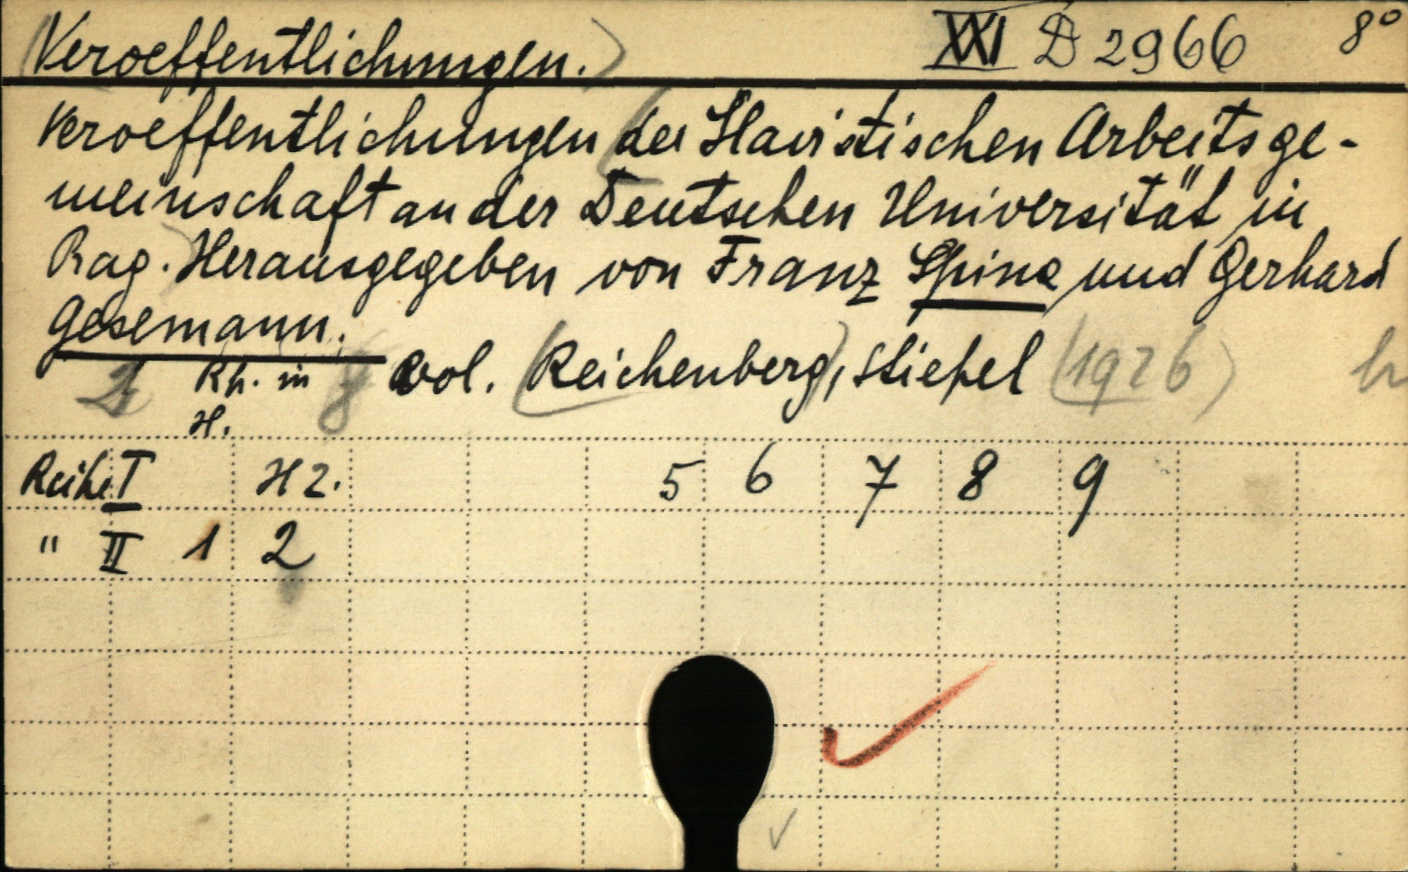 (Veroeffentlichungen.) XXI D 2966 8°
Veroeffentlichungen der Slavistischen Arbeitsge-
meinschaft an der Deutschen Universität in
Prag. Herausgegeben von Franz Spina und Gerhard
Gesemann.
2 Rh. in 8 vol. (Reichenberg), Stiepel (1926) h
H.
Reihe I H 2. 5 6 7 8 9
" II 1 2